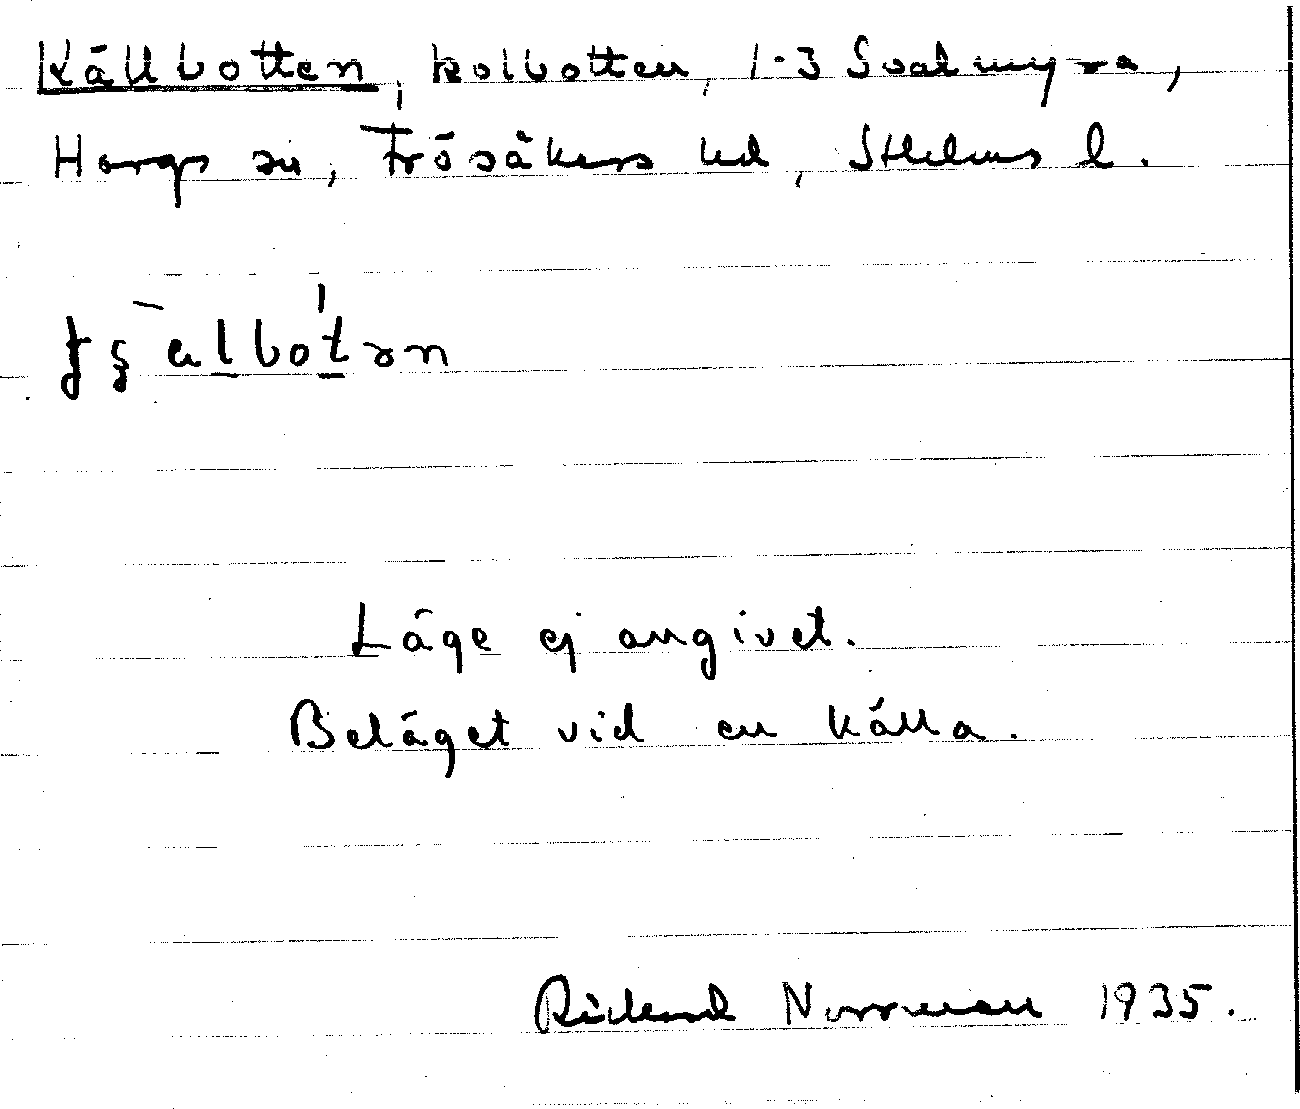 Källbotten, kolbotten, 1-3 Svalmyra,
Hargs sn, Frösåkers hd, Sthlms l.
Läge ej angivet.
Beläget vid en källa.
Rickard Norrman 1935.